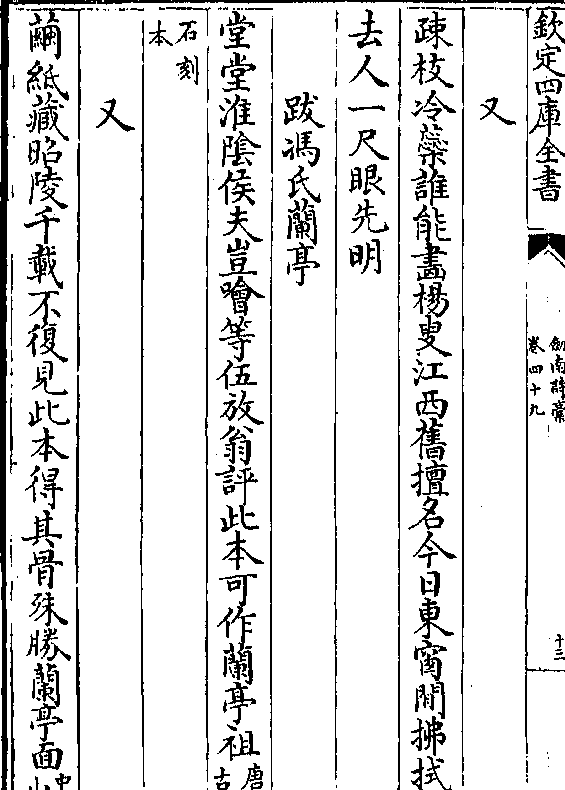 欽定四庫全書
劍南詩藁
卷四十九
十三
又
疎枝冷蘂誰能畵楊叟江西舊擅名今日東窗閒拂拭
去人一尺眼先明
跋馮氏蘭亭
堂堂淮隂侯夫豈噲等伍放翁評此本可作蘭亭祖唐古
石刻
本
又
繭紙藏昭陵千載不復見此本得其骨殊勝蘭亭面中